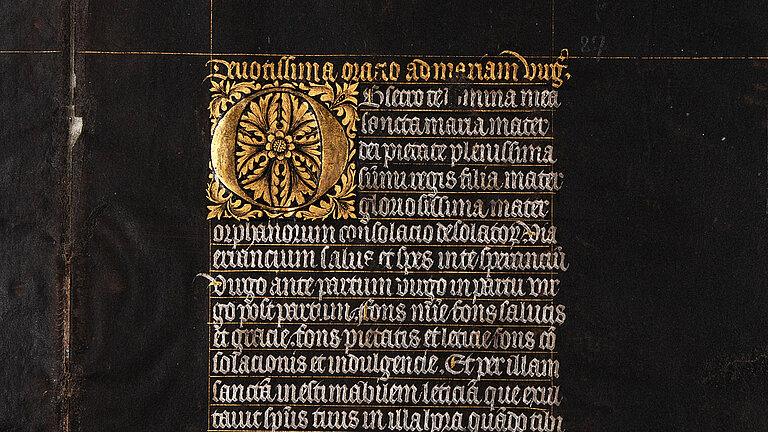 87
Devotissima oratio ad mariam virgīe
Obsecro te domina mea
sancta maria mater
dei pietate plenissima
sūmi regis filia mater
gloriosissima mater
orphanorum consolacio desolatoꝝ via
errancium salus et spes in te speranciū
virgo ante partum virgo in partu vir
go post partum. fons mīe fons salutis
et gracie. fons pietatis et leticie fons cō
solacionis et indulgencie. Et per illam
sanctā inestimabilem leticiā que exul
tavit spūs tuus in illa hora quādo tibi